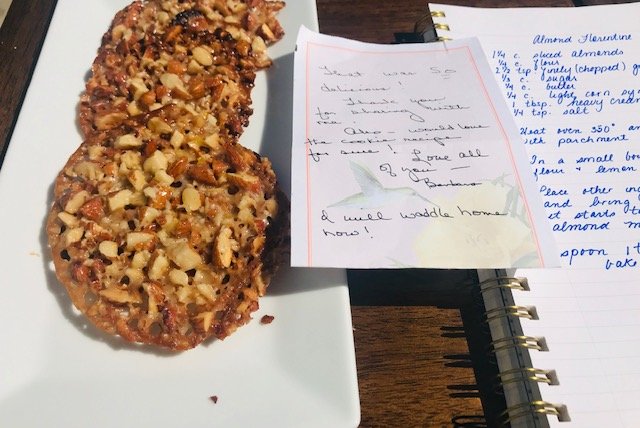 That was so
delicious!
Thank you
for sharing with
me.
Also - would love
the cookie recipe
for sure! Love all
of you -
Barbara
& will waddle home
now!
Almond Florentine
1 1/4 c. sliced almonds
1/4 c. flour
2 1/2 tsp finely (chopped)
1/3 c. sugar
1/4 c. butter
1/4 c. light corn
1 tbsp. heavy
1/4 tsp. salt
oven 350°
parchment
In a small
flour & lemon
Place other
and bring
it starts
almond
spoon 1
bake